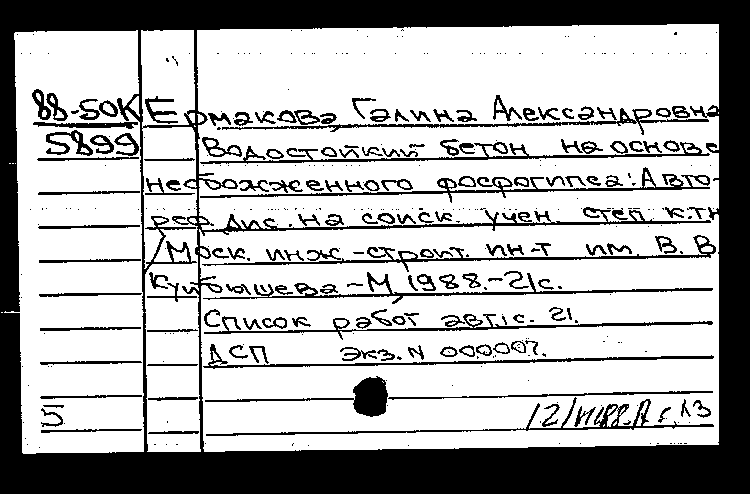 88-50К Ермакова, Галина Александровна
5899 Водостойкий бетон на основе
необожженного фосфогипса: Авто-
реф. дис. на соиск. учен. степ. к.т.н
/Моск. инж.-строит. ин-т им. В. В.
Куйбышева -М, 1988.-21с.
Список работ авт.: с. 21.
ДСП Экз. N 000007.
5